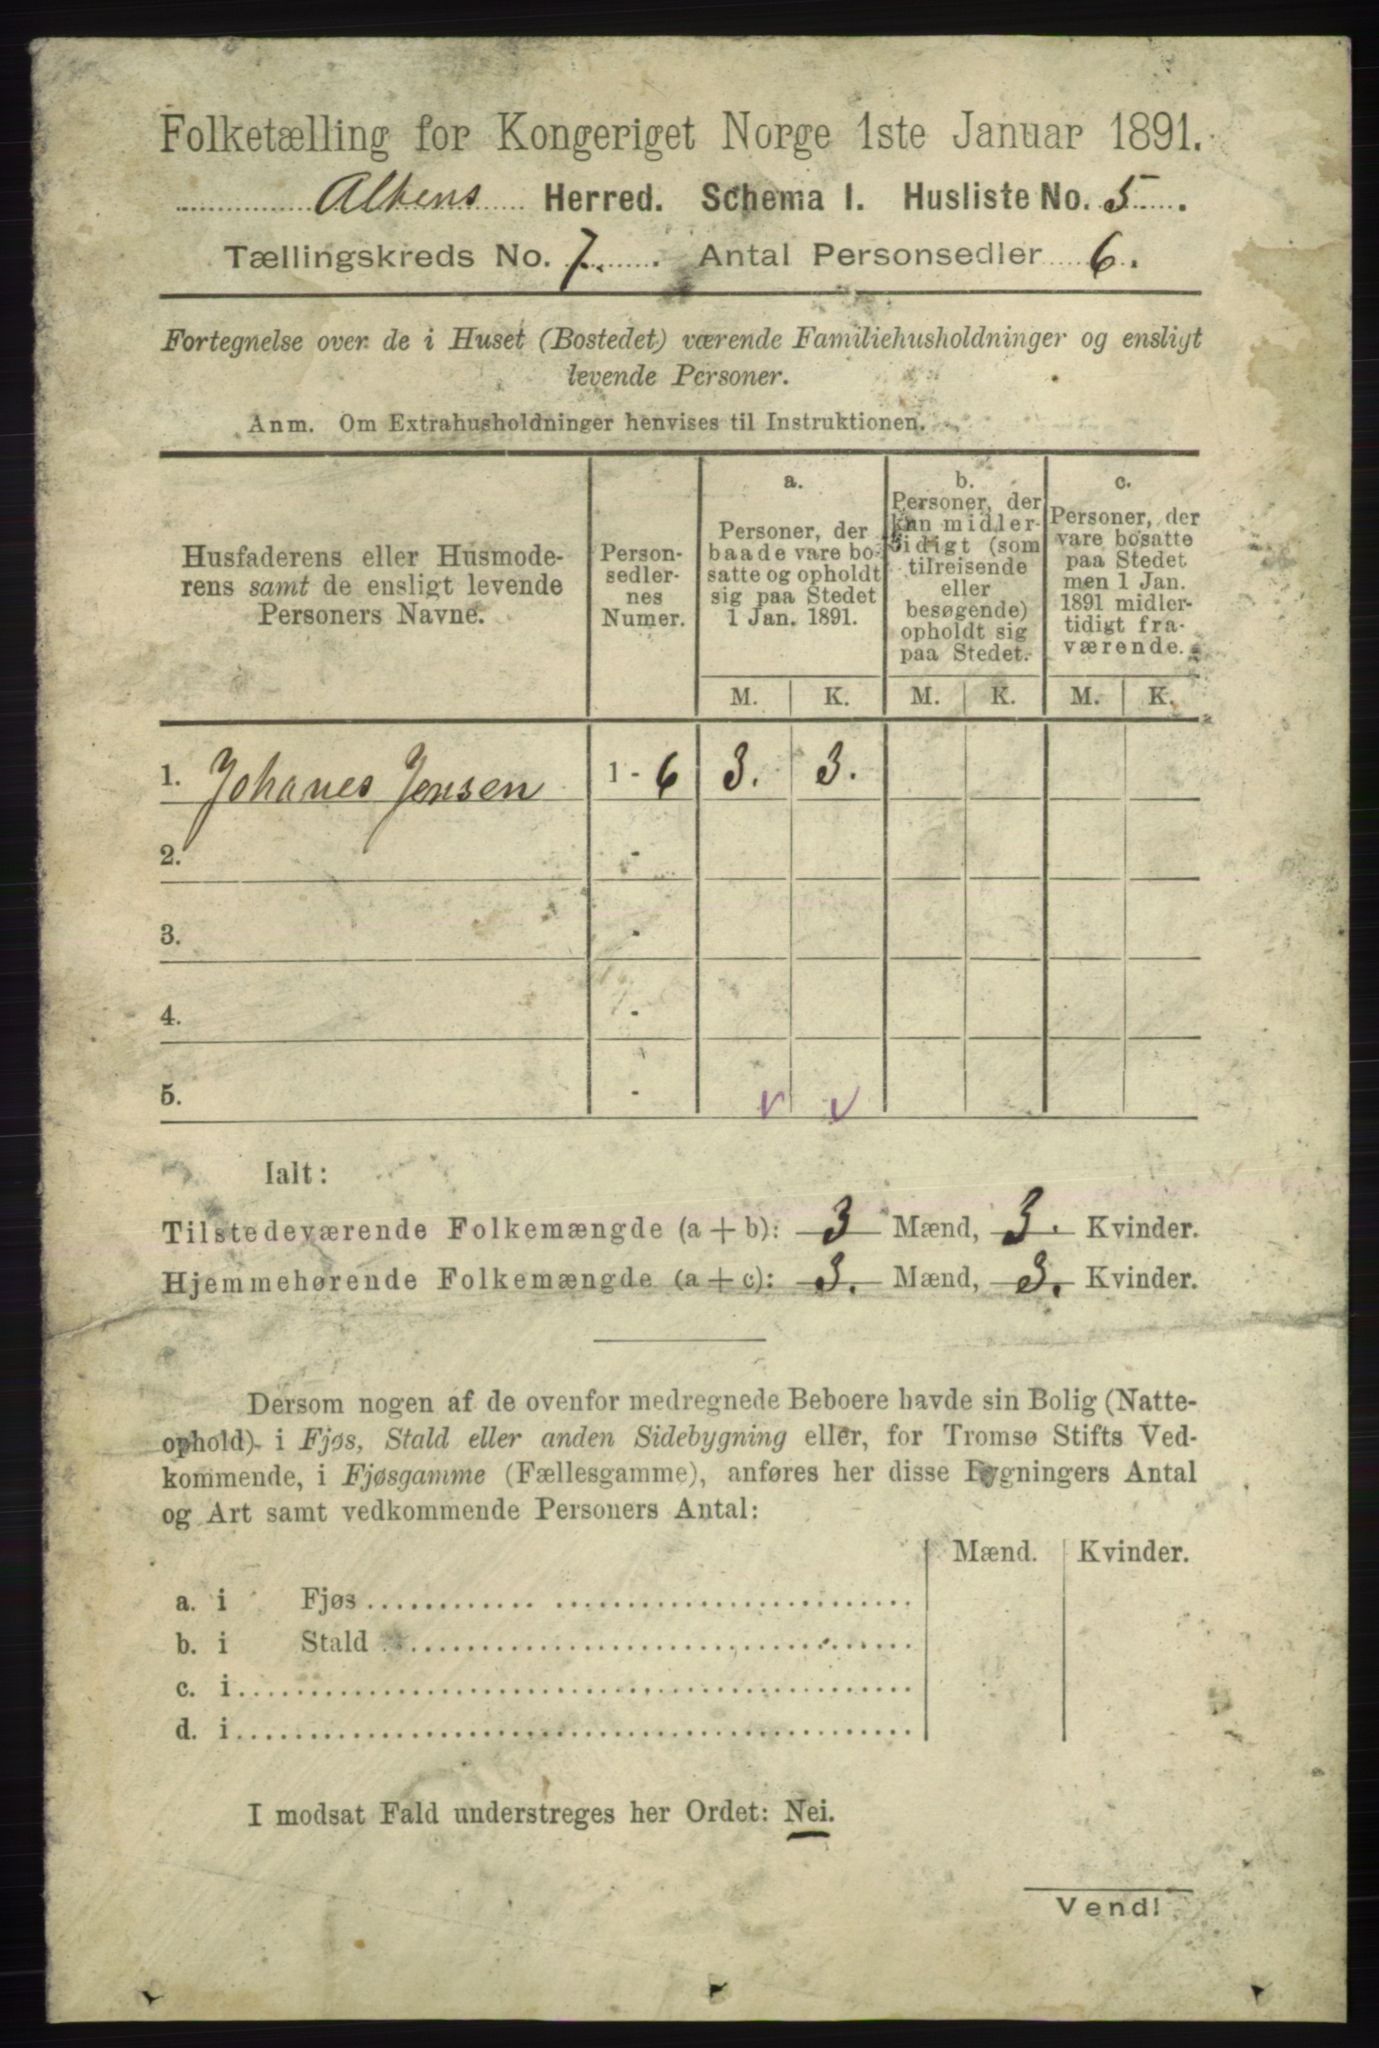 Folketælling for Kongeriget Norge 1ste Januar 1891.
Altens Herred. Schema I. Husliste No. 5.
Tællingskreds No. 7. Antal Personsedler 6.
Fortegnelse over de i Huset (Bostedet) værende Familiehusholdninger og ensligt
levende Personer.
Anm. Om Extrahusholdninger henvises til Instruktionen.
Husfaderens eller Husmode-
rens samt de ensligt levende
Personers Navne.
Person-
sedler-
nes
Numer.
a.
Personer, der
baade vare bo-
satte og opholdt
sig paa Stedet
1 Jan. 1891.
b.
Personer, der
kun midler-
tidigt (som
tilreisende
eller
besøgende)
opholdt sig
paa Stedet.
c.
Personer, der
vare bosatte
paa Stedet
men 1 Jan.
1891 midler-
tidigt fra-
værende.
M. K. M. K. M. K.
1. Johanes Jensen 1 - 6 3. 3.
2. -
3. -
4. -
5. -
Ialt:
Tilstedeværende Folkemængde (a + b): 3 Mænd, 3. Kvinder.
Hjemmehørende Folkemængde (a + c): 3. Mænd, 3. Kvinder.
Dersom nogen af de ovenfor medregnede Beboere havde sin Bolig (Natte-
ophold) i Fjøs, Stald eller anden Sidebygning eller, for Tromsø Stifts Ved-
kommende, i Fjøsgamme (Fællesgamme), anføres her disse Bygningers Antal
og Art samt vedkommende Personers Antal:
Mænd. Kvinder.
a. i Fjøs
b. i Stald
c. i
d. i
I modsat Fald understreges her Ordet: Nei.
Vend!